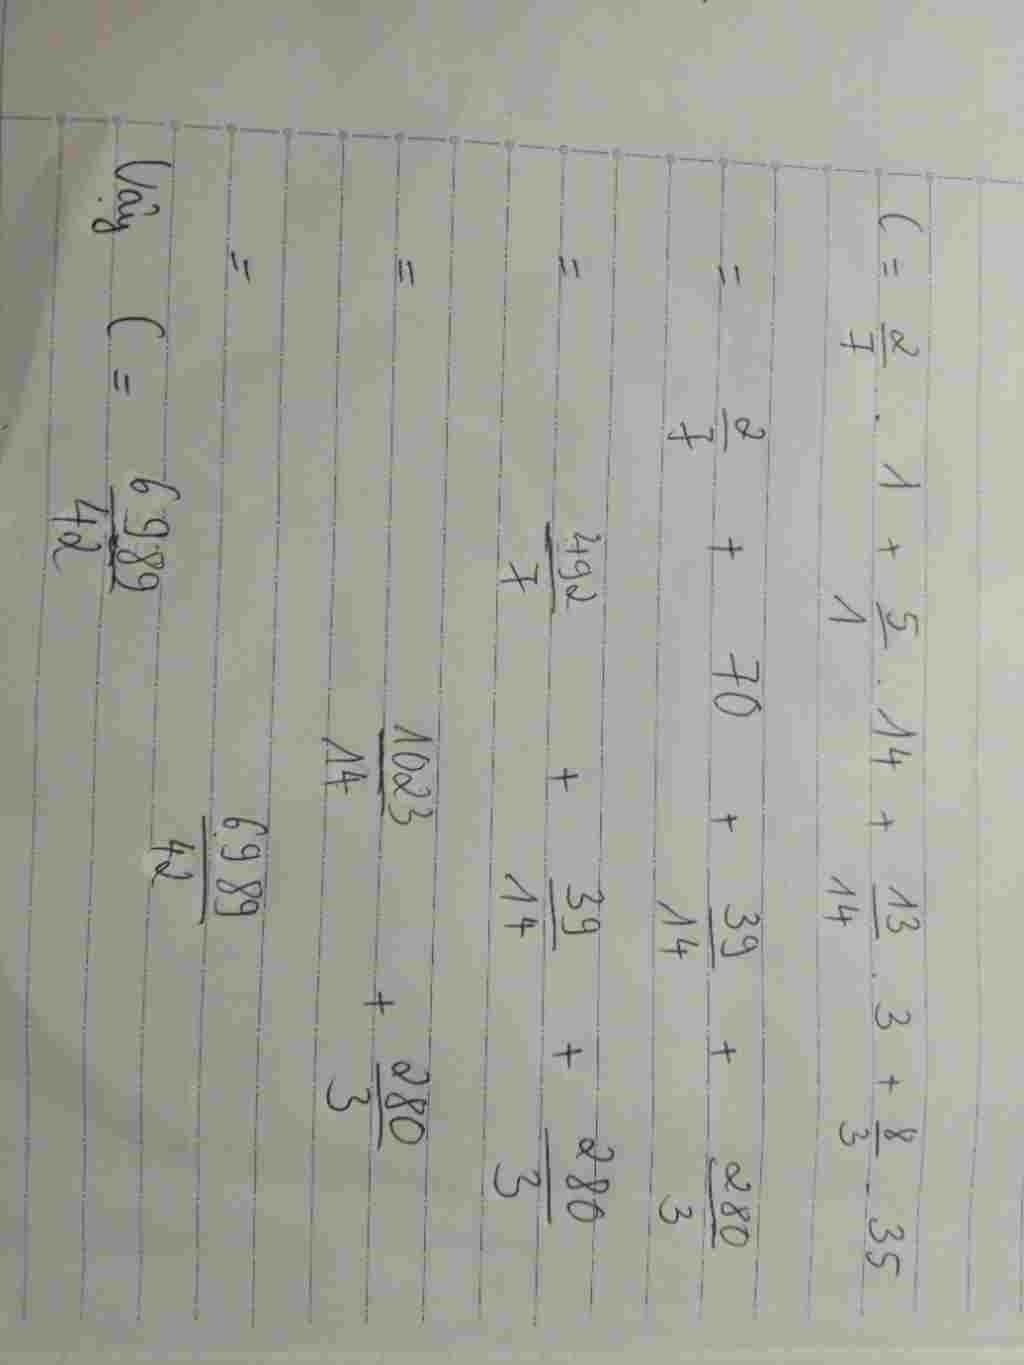 C = 2/7 . 1 + 5/1 . 14 + 13/14 . 3 + 8/3 . 35
= 2/7 + 70 + 39/14 + 280/3
= 492/7 + 39/14 + 280/3
= 1023/14 + 280/3
= 6989/42
Vậy C = 6989/42